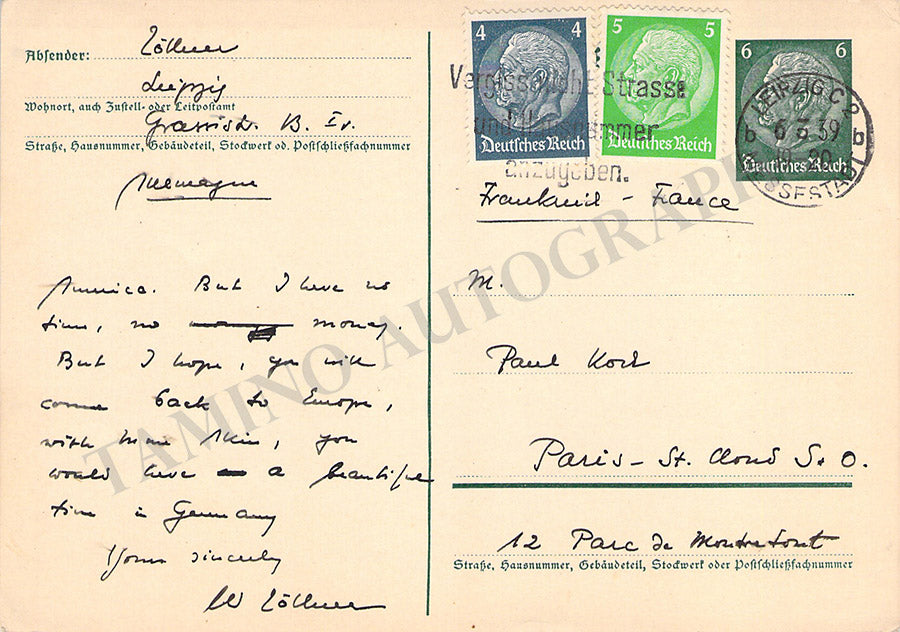 Absender: Zöllner
Leipzig
Wohnort, auch Zustell- oder Leitpostamt
Grassistr. B. IV.
Straße, Hausnummer, Gebäudeteil, Stockwerk od. Postschließfachnummer
Allemagne
America. But I have no
time, no money.
But I hope, you will
come back to Europe,
with
you
would have a beautiful
time in Germany
Yours sincerely
W Zöllner
4 4
Deutsches Reich
5 5
Deutsches Reich
6 6
Deutsches Reich
Vergiss nicht Strasse
und Hausnummer
anzugeben.
LEIPZIG C 2
b 6 3 39 b
20
MESSESTADT
Frankreich - France
M.
Paul
Paris - St. Cloud S. O.
12 Parc de Montretout
Straße, Hausnummer, Gebäudeteil, Stockwerk oder Postschließfachnummer
TAMINO AUTOGRAPHS